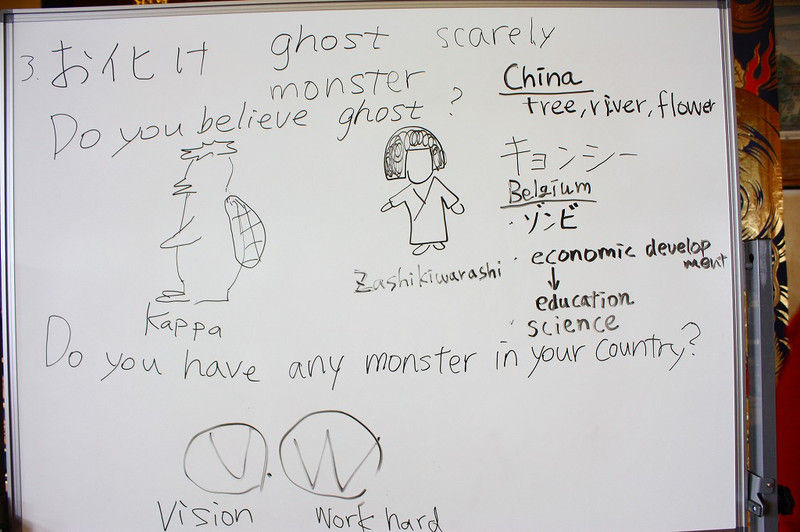 3. お化け ghost scarely
monster
Do you believe ghost?
China
tree, river, flower
キョンシー
Belgium
・ゾンビ
・economic develop
ment
↓
education
・science
Kappa
Zashikiwarashi
Do you have any monster in your country?
V. W
Vision Work hard